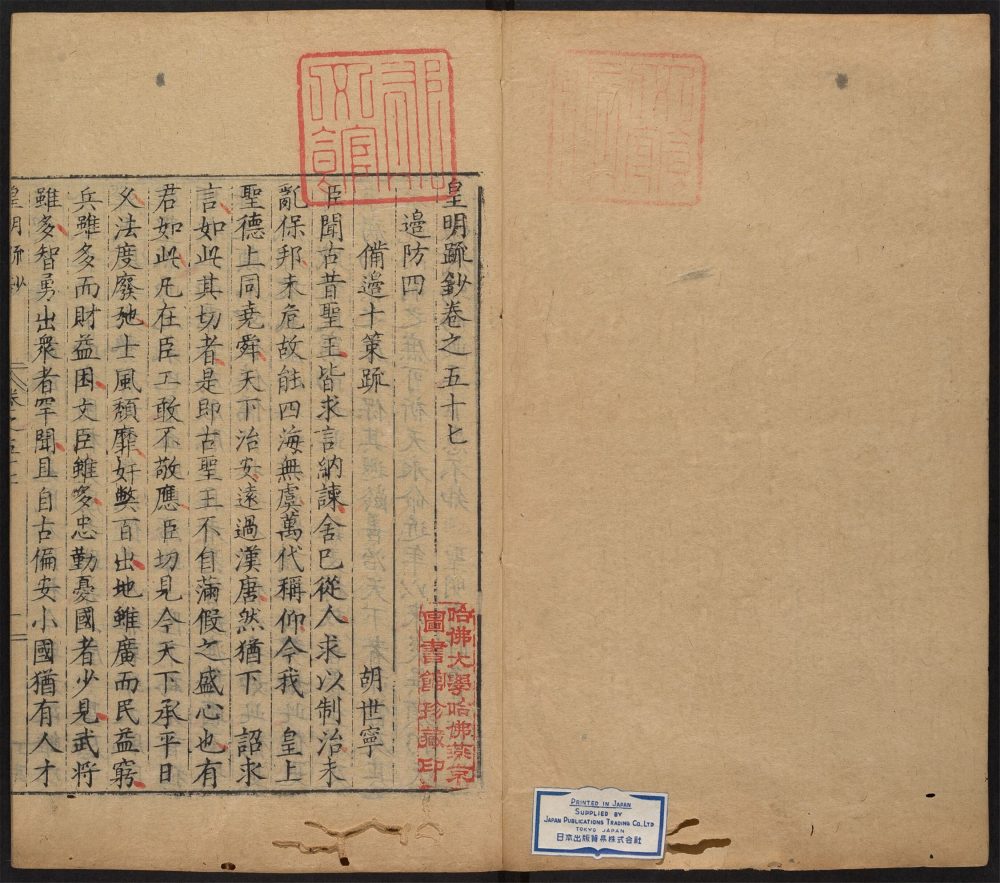 皇明䟽鈔卷之五十七
邉防四
備邉十策䟽
胡世寧
臣聞古昔聖王皆求言納諫舍己從人求以制治未
亂保邦未危故能四海無虞萬代稱仰今我 皇上
聖德上同堯舜天下治安遠過漢唐然猶下 詔求
言如此其切者是即古聖王不自滿假之盛心也有
君如此凡在臣工敢不敬應臣切見今天下承平日
乆法度廢弛士風頹靡奸弊百出地雖廣而民益窮
兵雖多而財益困文臣雖多忠勤憂國者少見武將
雖多智勇出衆者罕聞且自古偏安小國猶有人才
皇明䟽鈔
哈佛大學哈佛燕京
圖書館珍藏印
PRINTED IN JAPAN
SUPPLIED BY
JAPAN PUBLICATIONS TRADING CO., LTD
TOKYO JAPAN
日本出版貿易株式会社